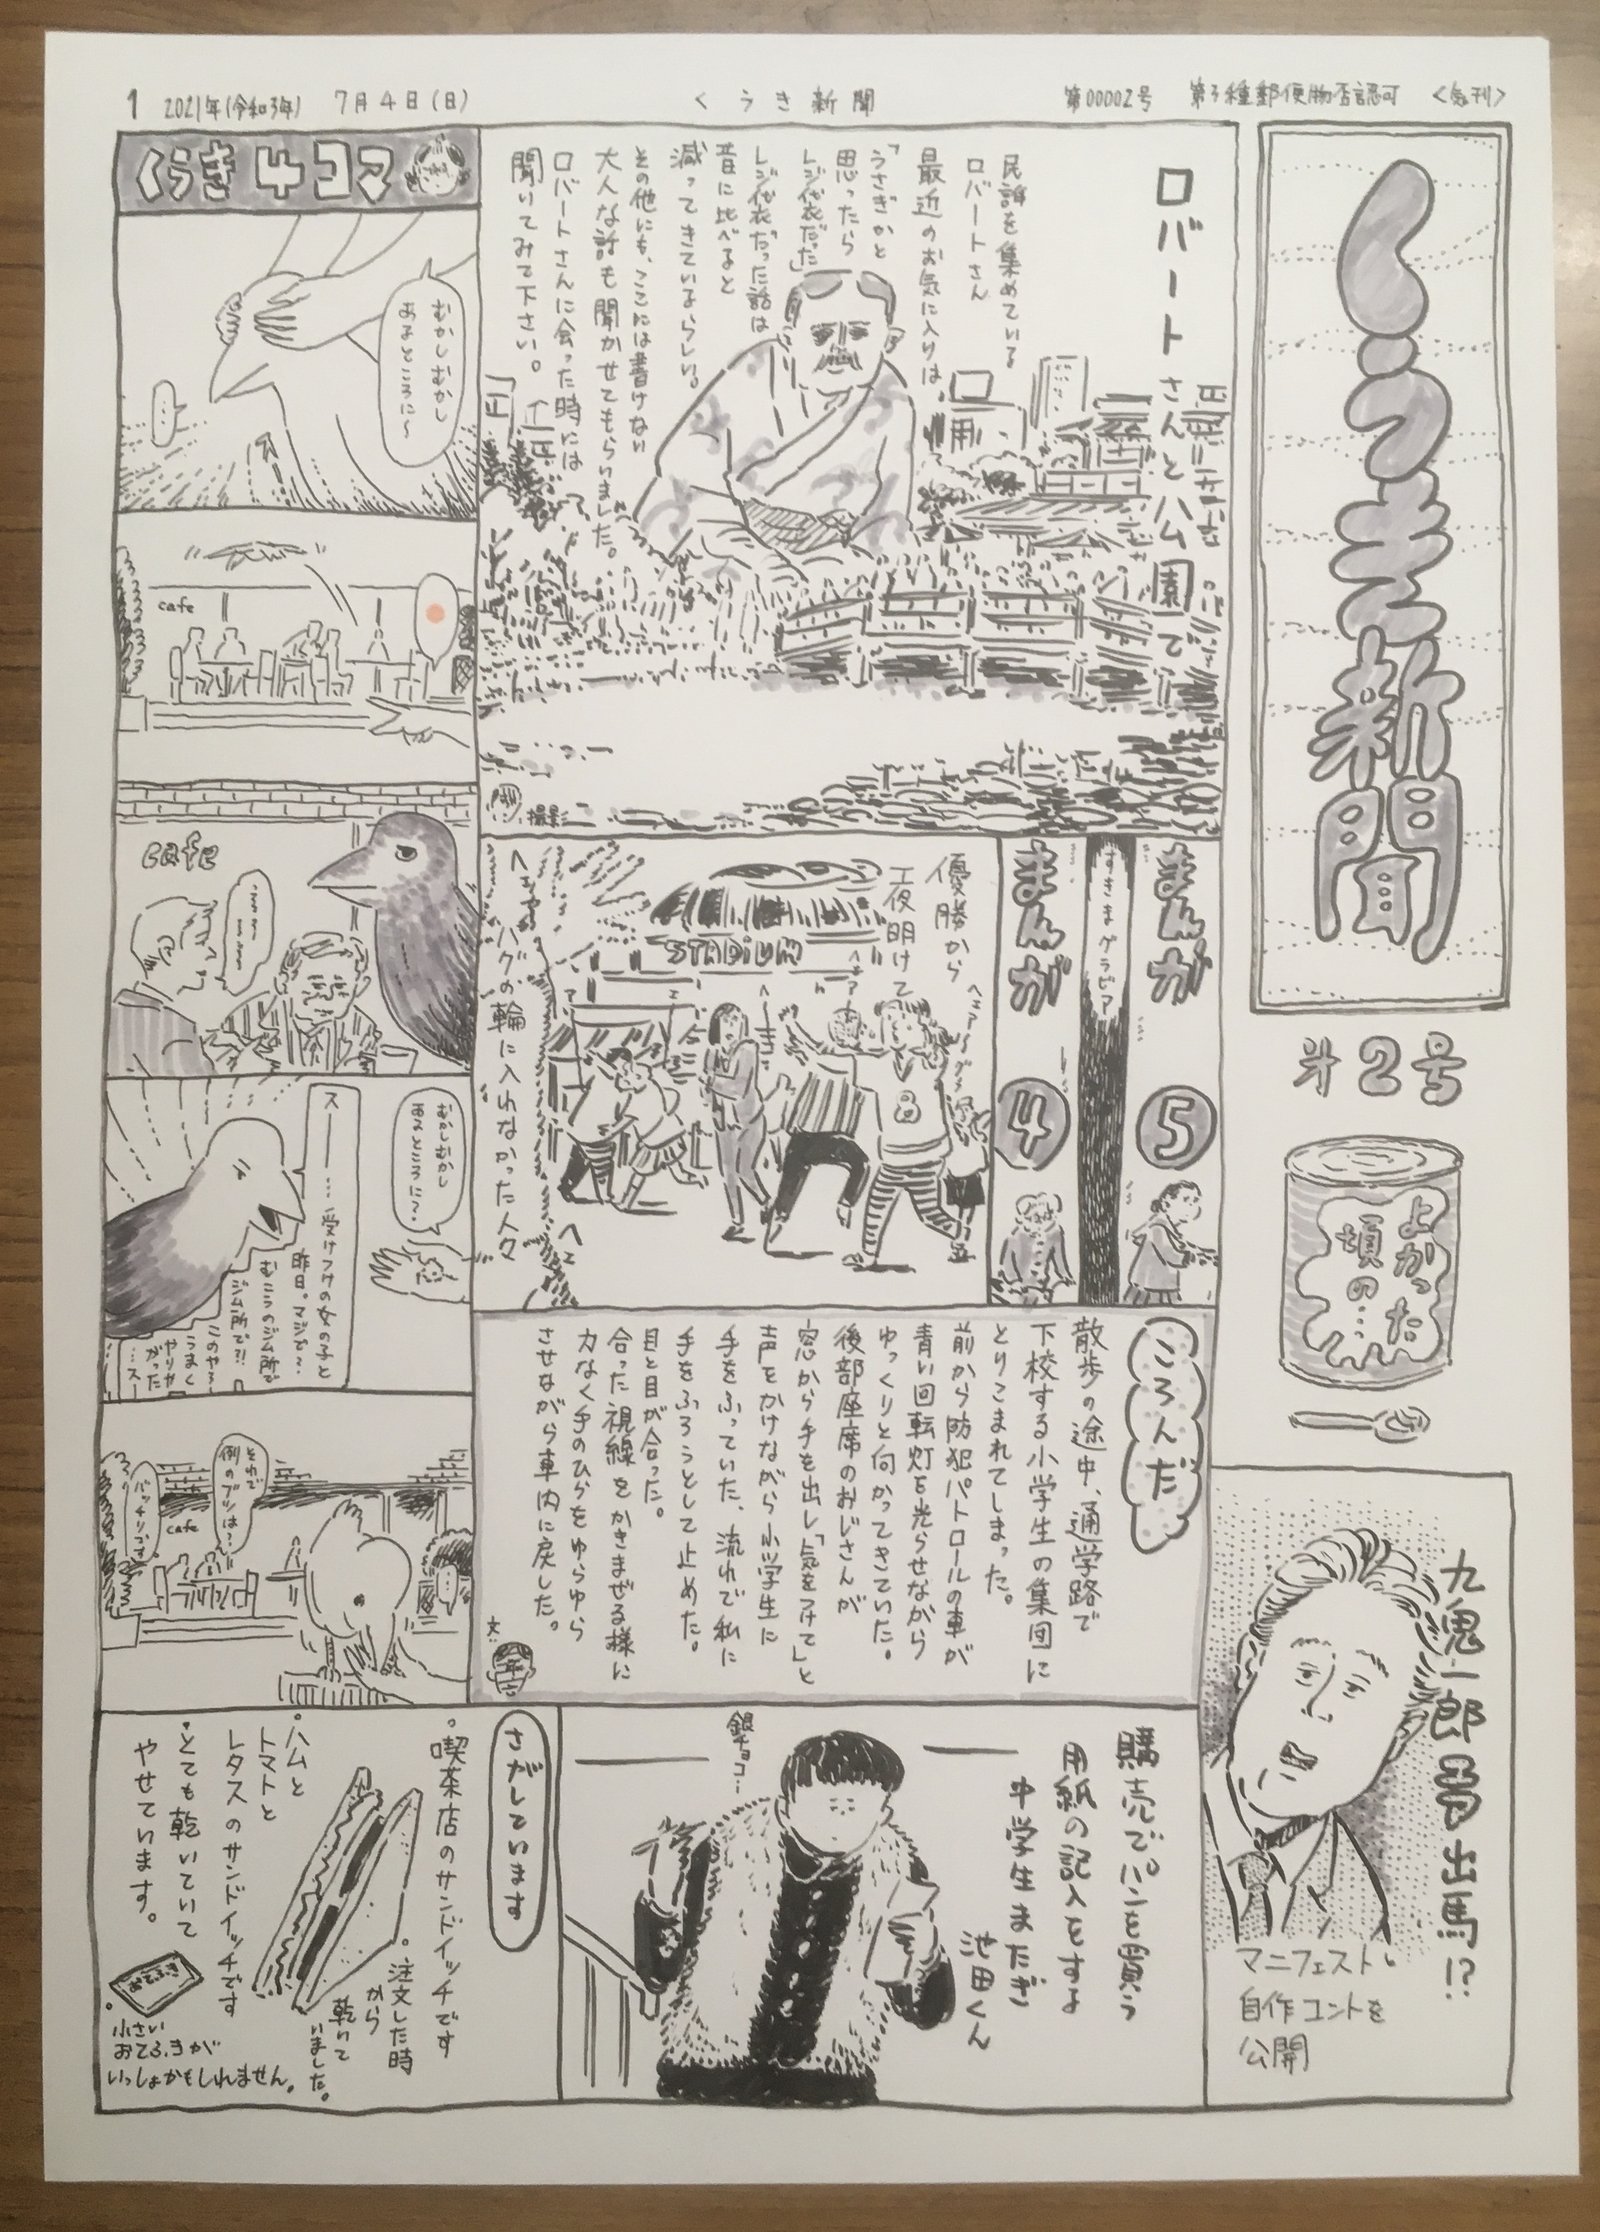 1 2021年(令和3年) 7月4日(日)
くうき新聞
第00002号
第3種郵便物否認可
<気刊>
くうき新聞
オ2号
よかった
頃の…
九鬼一郎
出馬!?
マニフェスト、
自作コントを
公開
ロバートさんと公園で
民話を集めている
ロバートさん
最近のお気に入りは、
「うさぎかと
思ったら
レジ袋だった」
レジ袋だった話は
昔に比べると
減ってきているらしい。
その他にも、ここには書けない
大人な話も聞かせてもらいました。
ロバートさんに会った時には
聞いてみて下さい。
撮影
まんが
5
すきまグラビア
まんが
4
優勝から
一夜明けて
STADiUM
ハグの輪に入れなかった人々
ころんだ
散歩の途中、通学路で
下校する小学生の集団に
とりこまれてしまった。
前から防犯パトロールの車が
青い回転灯を光らせながら
ゆっくりと向かってきていた。
後部座席のおじさんが
窓から手を出し「気をつけて」と
声をかけながら小学生に
手をふっていた、流れで私に
手をふろうとして止めた。
目と目が合った。
合った視線をかきまぜる様に
力なく手のひらをゆらゆら
させながら車内に戻した。
文:
購売でパンを買う
用紙の記入をする
中学生またぎ
池田くん
銀チョコ…
さがしています
喫茶店のサンドイッチです
・注文した時
から
乾いて
いました。
・ハムと
トマトと
レタスのサンドイッチです
・とても乾いていて
やせています。
おてふき
・小さい
おてふきが
いっしょかもしれません。
くうき4コマ
むかしむかし
あるところに〜
…
cafe
cafe
むかしむかし
あるところに?
スー……受けつけの女の子と
昨日。マジで〜
むこうのジム所が
ジム所で?!
このやろー
うまく
やりや
がった
…スー
それで
例のブツは?
バッチリです
cafe
…